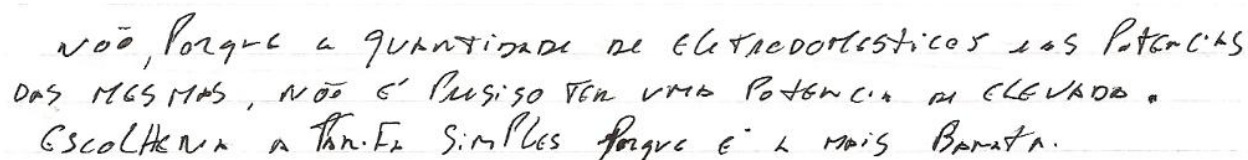 Não, Porque a quantidade de eletrodomésticos e as Potencias
das mesmas, não é Presiso ter uma Potência de elevada.
Escolheria a Tarifa Simples Porque é a mais Barata.